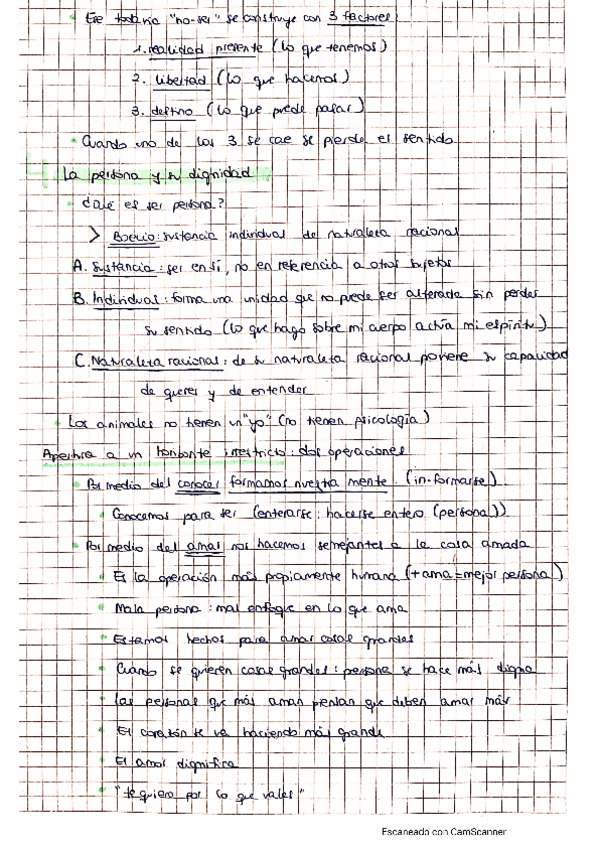 Ese todavía "no-ser" se construye con 3 factores:
1. realidad presente (lo que tenemos)
2. libertad (lo que hacemos)
3. destino (lo que puede pasar)
Cuando uno de los 3 se cae se pierde el sentido
La persona y su dignidad
¿Qué es ser persona?
> Boecio: sustancia individual de naturaleza racional
A. Sustancia: ser en sí, no en referencia a otros sujetos
B. Individual: forma una unidad que no puede ser alterada sin perder
su sentido (lo que hago sobre mi cuerpo actúa mi espíritu)
C. Naturaleza racional: de su naturaleza racional proviene su capacidad
de querer y de entender
Los animales no tienen un "yo" (no tienen psicología)
Apertura a un horizonte irrestricto: dos operaciones
Por medio del conocer formamos nuestra mente. (in-formarse)
Conocemos para ser (enterarse: hacerse entero (persona))
Por medio del amar nos hacemos semejantes a la cosa amada
Es la operación más propiamente humana (+ama=mejor persona)
Mala persona: mal enfoque en lo que ama
Estamos hechos para amar cosas grandes
Cuando se quieren cosas grandes: persona se hace más digna
Las personas que más aman piensan que deben amar más
El corazón se va haciendo más grande
El amor dignifica
"te quiero por lo que vales"
Escaneado con CamScanner